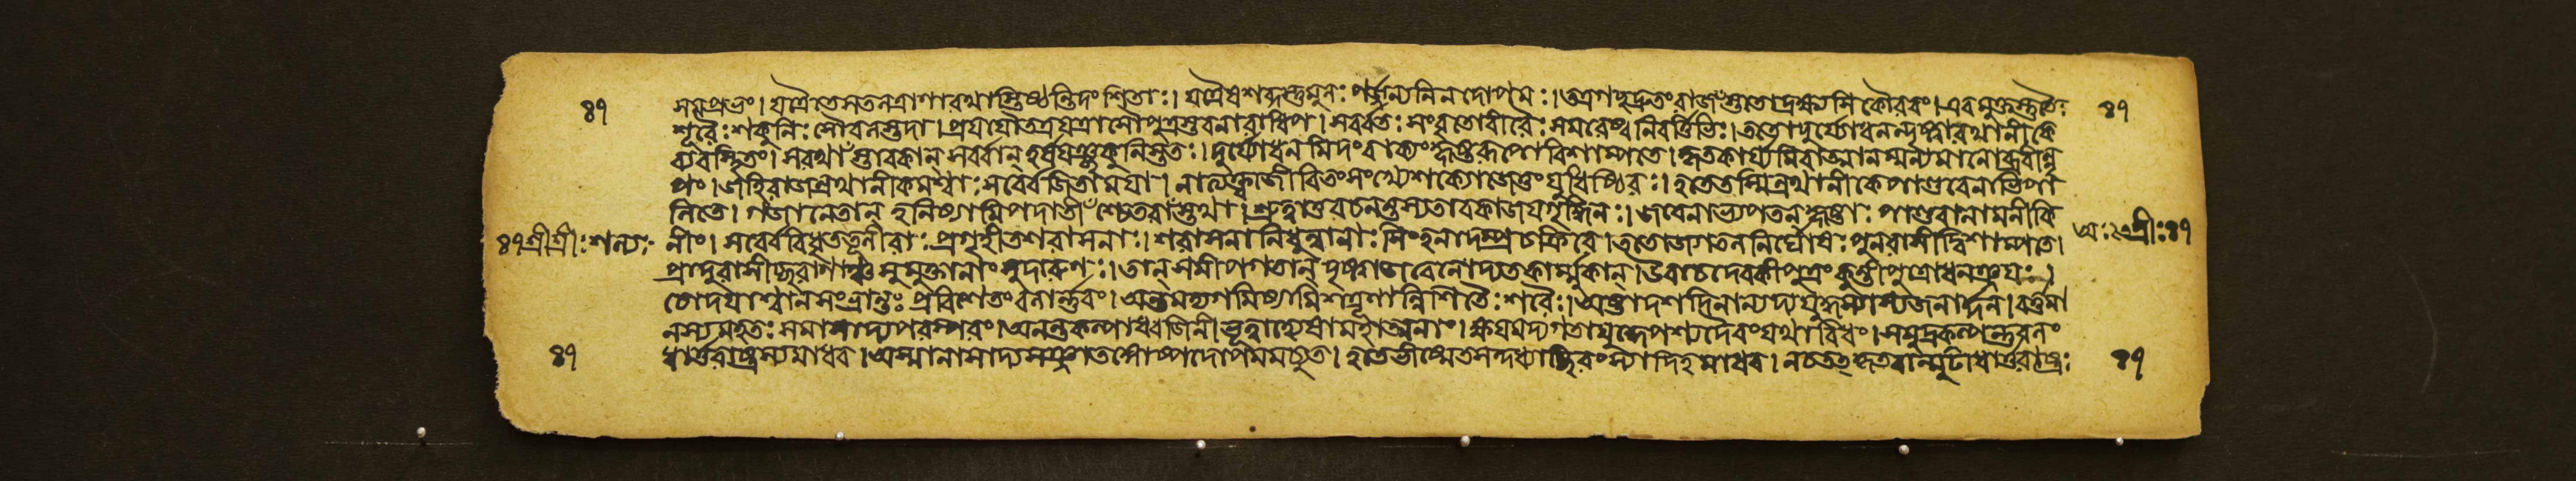 ৪৭ সমপ্রভং। যত্রৈতে সতনুত্রাণা রথাস্তিষ্ঠন্তি দংশিতাঃ। যত্রৈষ শব্দস্তুমুলঃ পর্জ্জন্যনিনদোপমঃ। তত্র গচ্ছ দ্রুতং রাজঁস্ততো দ্রক্ষ্যসি কৌরবং। এবমুক্তস্তু তৈঃ ৪৭
শূরৈঃ শকুনিঃ সৌবলস্তদা। প্রযযৌ তত্র যত্রাসৌ পুত্রস্তব নরাধিপ। সর্ব্বতঃ সংবৃতো বীরৈঃ সমরেষ্বনিবর্ত্তিভিঃ। ততো দুর্য্যোধনন্দৃষ্ট্বা রথানীকে
ব্যবস্থিতং। সরথাঁস্তাবকান্ সর্ব্বান্ হর্ষযঞ্ছকুনিস্ততঃ। দুর্য্যোধনমিদং বাক্যং হৃষ্টরূপো বিশাম্পতে। কৃতকার্য্যমিবাত্মানম্মন্যমানোব্রবীন্নৃ
পং। জহি রাজন্রথানীকমশ্বাঃ সর্ব্বে জিতা মযা। নাত্যক্ত্বা জীবিতং সংখ্যে শক্যো জেতুং যুধিষ্ঠিরঃ। হতে তস্মিন্রথানীকে পাণ্ডবেনাভিপা
লিতে। গজানেতান্ হনিষ্যামি পদাতীঁশ্চেতরাঁস্তথা। শ্রুত্বা তু বচনন্তস্য তাবকা জযগৃদ্ধিনঃ। জবেনাভ্যপতন্ হৃষ্টাঃ পাণ্ডবানামনীকি
৪৭ শ্রীশ্রীঃ শল্যঃ নীং। সর্ব্বে বিবৃততূনীরাঃ প্রগৃহীতশরাসনাঃ। শরাসনানি ধুন্বানাঃ সিংহনাদম্প্রচক্রিরে। ততো জ্যাতলনির্ঘোষঃ পুনরাসীদ্বিশাম্পতে। শ্রীঃ ৪৭
প্রাদুরাসীচ্ছরাণাঞ্চ সুমুক্তানাং সুদারুণঃ। তান্ সমীপগতান্ দৃষ্ট্বা জবেনোদ্যতকার্ম্মুকান্। উবাচ দেবকীপুত্রং কুন্তীপুত্রো ধনঞ্জযঃ।
চোদযাশ্বানসংভ্রান্তঃ প্রবিশৈতং বলার্ণ্ণবং। অন্তমদ্য গমিষ্যামি শত্রূণান্নিশিতৈঃ শরৈঃ। অষ্টাদশ দিনান্যদ্য যুদ্ধস্যাস্য জনার্দ্দন। বর্ত্তমা
নস্য মহতঃ সমাসাদ্য পরস্পরং। অনন্তকল্পা ধ্বজিনী ভূত্বা হ্যেষাং মহাত্মনাং। ক্ষযমদ্য গতা যুদ্ধে পশ্য দৈবং যথাবিধং। সমুদ্রকল্পন্তু বলং
৪৭ ধার্ত্তরাষ্ট্রস্য মাধব। অস্মানাসাদ্য সঞ্জাতং গোষ্পদোপমমচ্যুত। হতে ভীষ্মে তু সন্দধ্যাচ্ছিবং স্যাদিহ মাধব। ন চ তত্ কৃতবান্মূঢো ধার্ত্তরাষ্ট্রঃ ৪৭